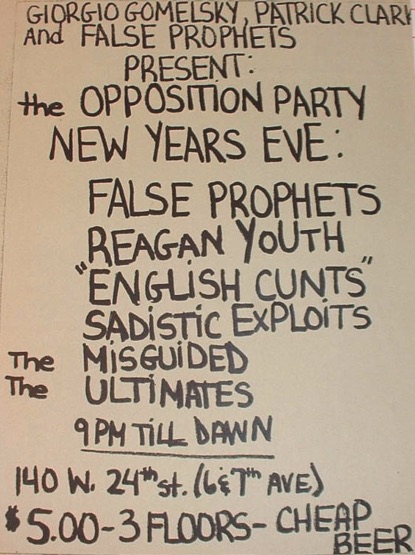 GIORGIO GOMELSKY, PATRICK CLARK
And FALSE PROPHETS
PRESENT:
the OPPOSITION PARTY
NEW YEARS EVE:
FALSE PROPHETS
REAGAN YOUTH
"ENGLISH CUNTS"
SADISTIC EXPLOITS
The MISGUIDED
The ULTIMATES
9 PM TILL DAWN
140 W. 24th st. (6 & 7th AVE)
$5.00 - 3 FLOORS - CHEAP
BEER